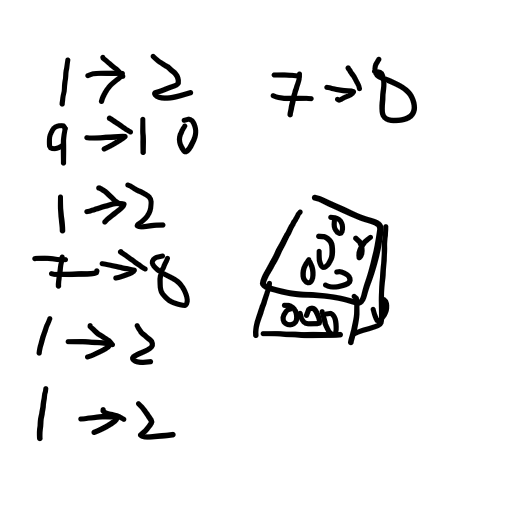 1 → 2
9 → 10
1 → 2
7 → 8
1 → 2
1 → 2
7 → 8